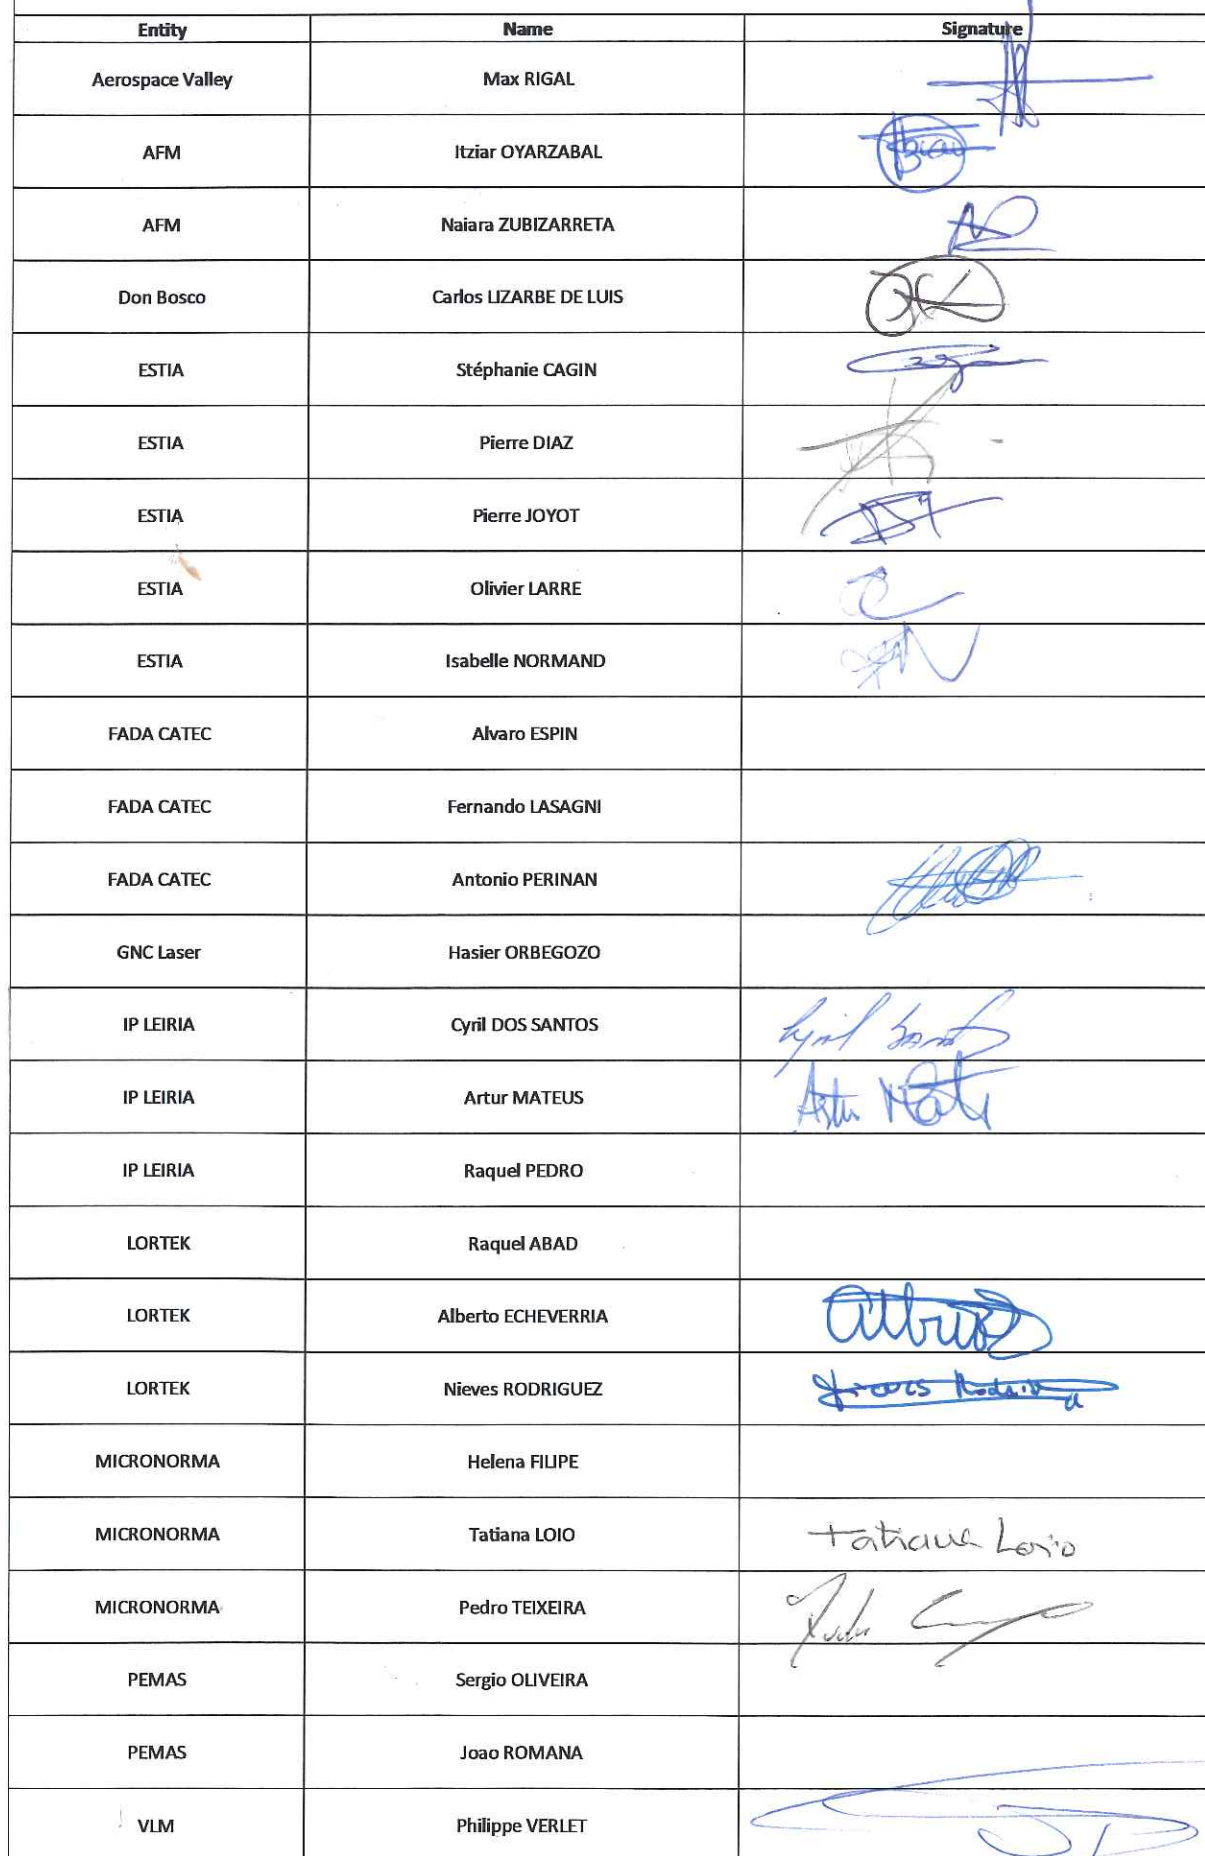 Entity Name Signature
Aerospace Valley Max RIGAL
AFM Itziar OYARZABAL
AFM Naiara ZUBIZARRETA
Don Bosco Carlos LIZARBE DE LUIS
ESTIA Stéphanie CAGIN
ESTIA Pierre DIAZ
ESTIA Pierre JOYOT
ESTIA Olivier LARRE
ESTIA Isabelle NORMAND
FADA CATEC Alvaro ESPIN
FADA CATEC Fernando LASAGNI
FADA CATEC Antonio PERINAN
GNC Laser Hasier ORBEGOZO
IP LEIRIA Cyril DOS SANTOS
IP LEIRIA Artur MATEUS
IP LEIRIA Raquel PEDRO
LORTEK Raquel ABAD
LORTEK Alberto ECHEVERRIA
LORTEK Nieves RODRIGUEZ
MICRONORMA Helena FILIPE
MICRONORMA Tatiana LOIO Tatiana Loio
MICRONORMA Pedro TEIXEIRA
PEMAS Sergio OLIVEIRA
PEMAS Joao ROMANA
VLM Philippe VERLET